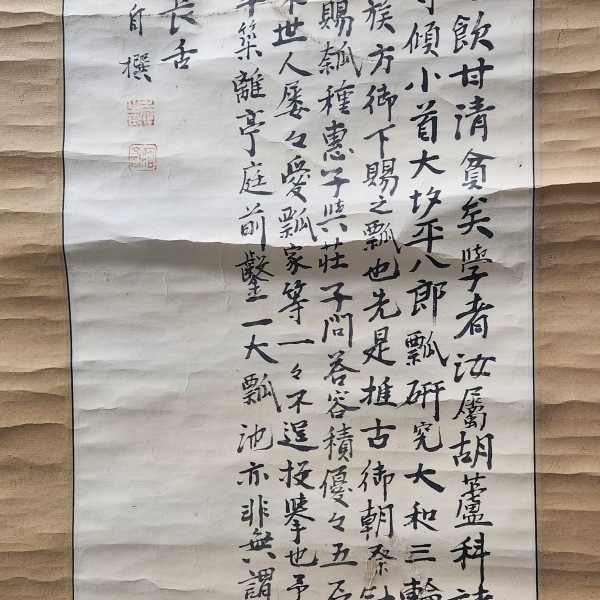 飲甘清貧矣學者汝屬胡蘆科
傾小首大坊平八郎瓢研究大和三輪
族方御下賜之瓢也先是推古御朝祭
賜瓠種惠子與莊子問荅容積優々五石
世人屡々愛瓢家等一々不遑枚擧也予
築離亭庭前鑿一大瓢池亦非無謂
長舌
自撰